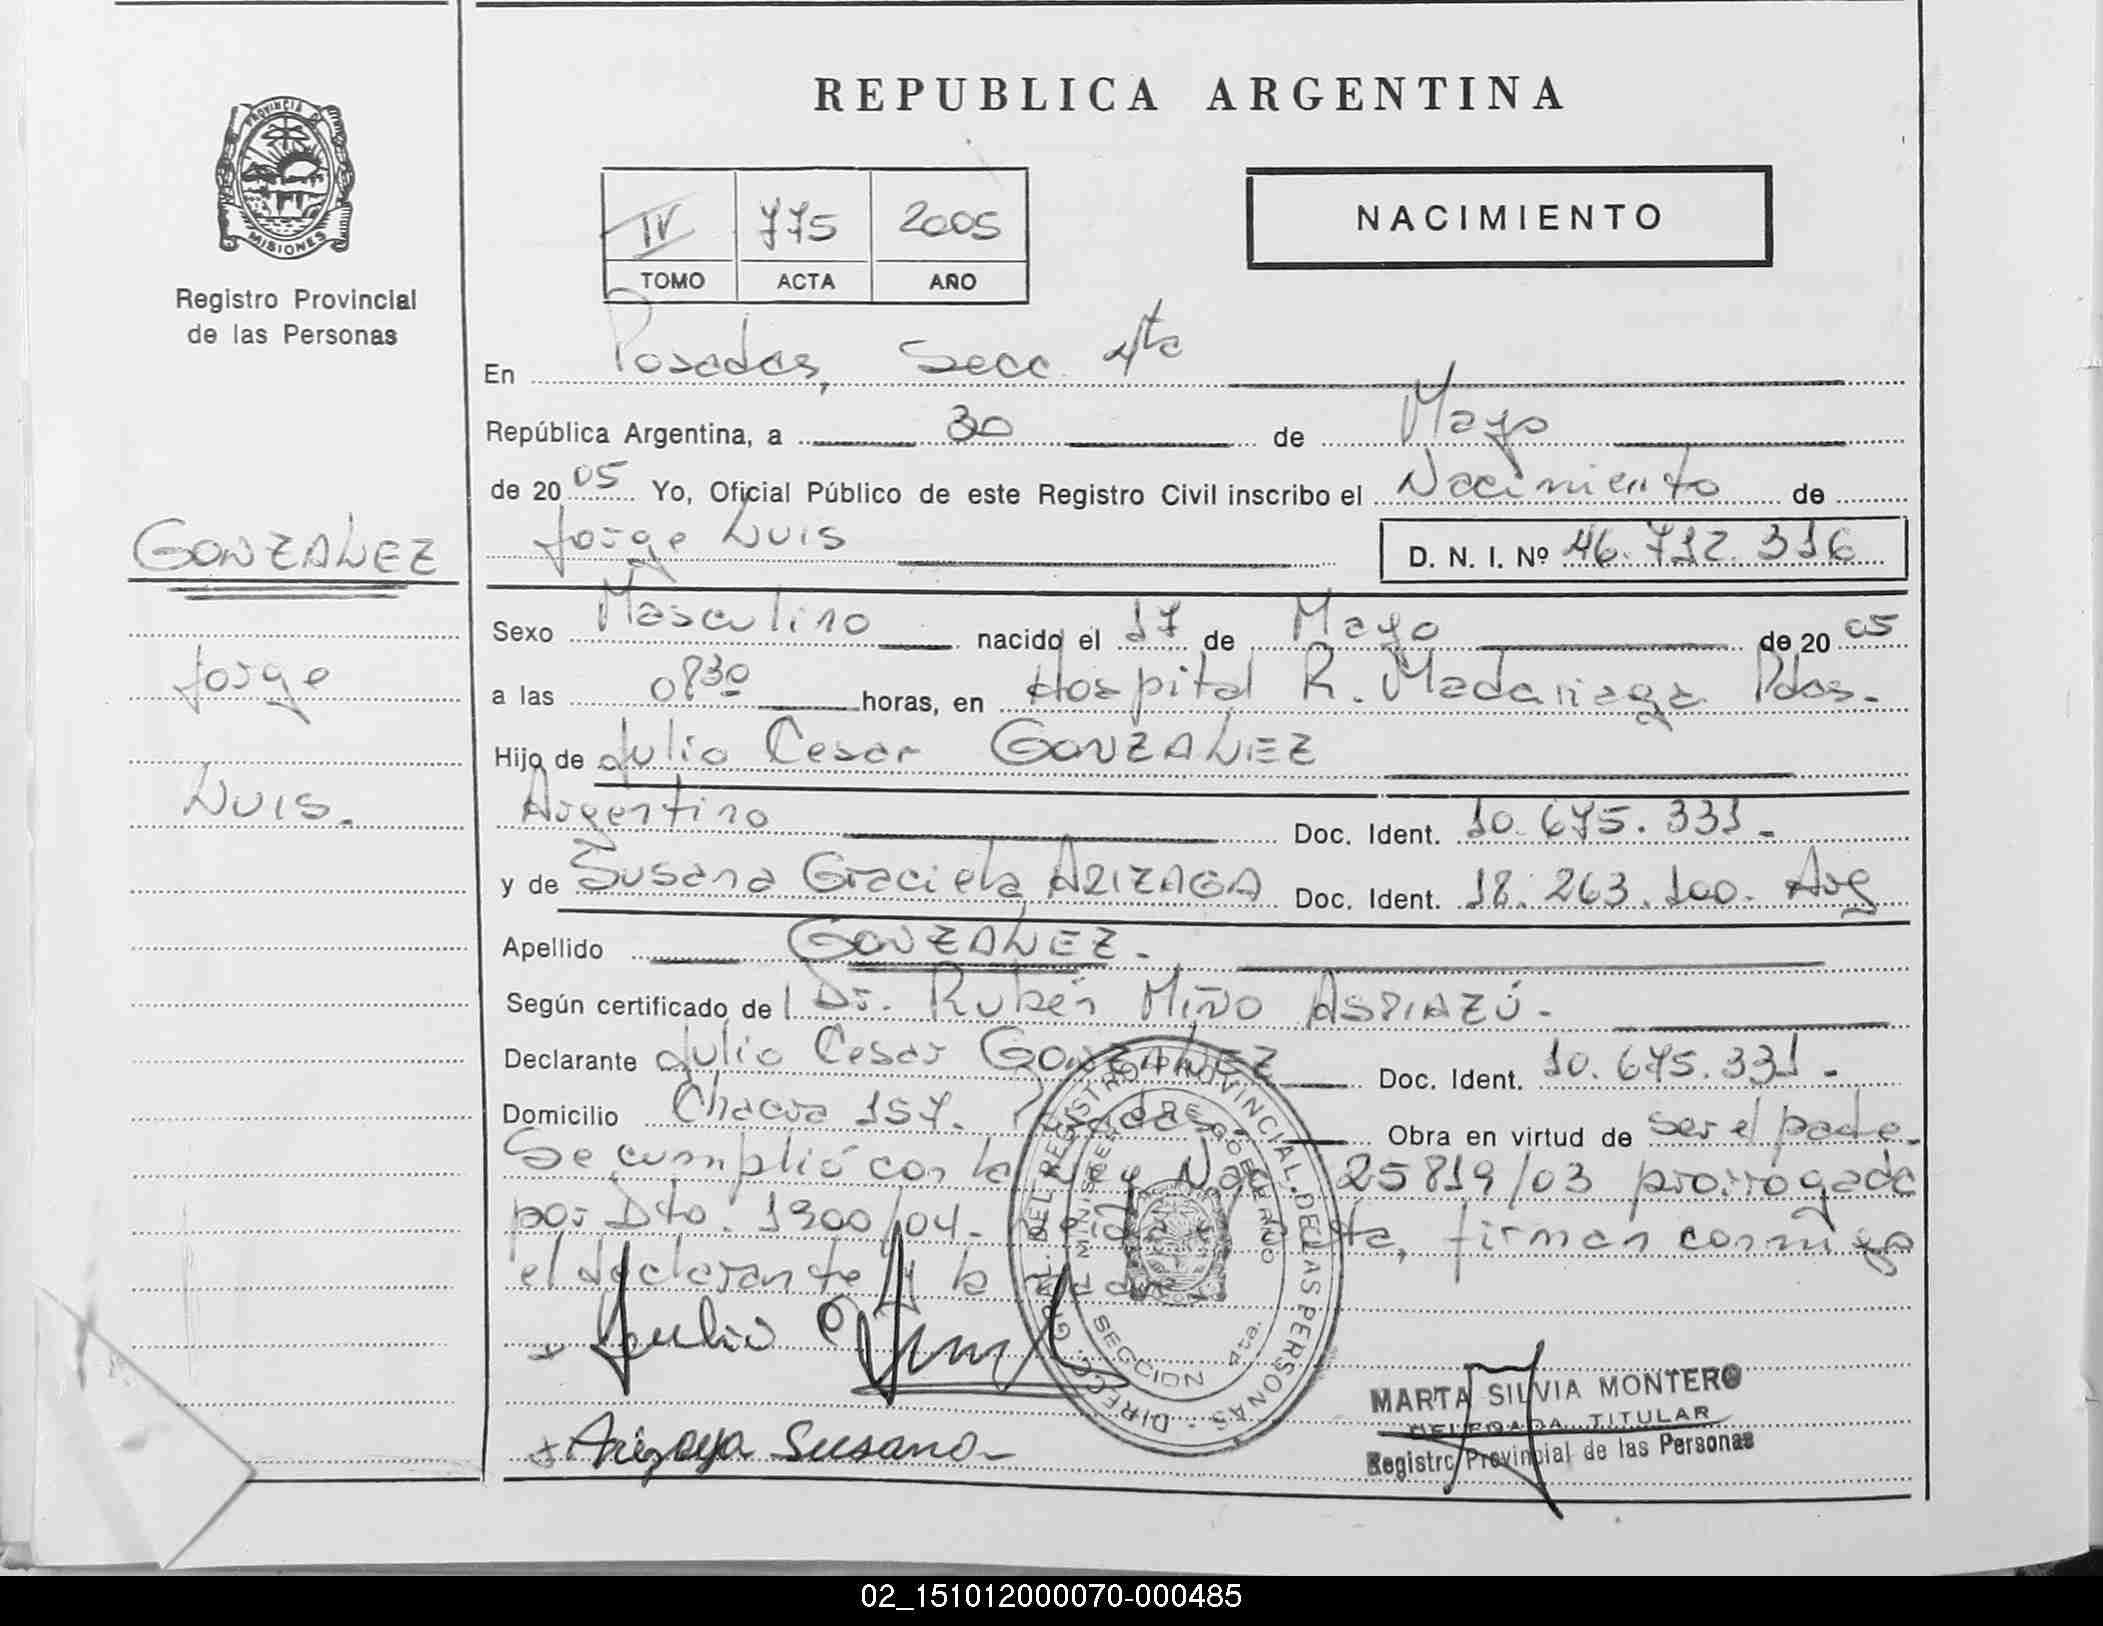 REPUBLICA ARGENTINA
PROVINCIA DE
MISIONES
Registro Provincial
de las Personas
IV 775 2005
TOMO ACTA AÑO
NACIMIENTO
En Posadas, Secc. 4ta
República Argentina, a 30 de Mayo
de 2005 Yo, Oficial Público de este Registro Civil inscribo el Nacimiento de
GONZALEZ
Jorge Luis D. N. I. Nº 46.712.316
Sexo Masculino nacido el 17 de Mayo de 2005
Jorge
a las 0830 horas, en Hospital R. Madariaga Pdas.
Hijo de Julio Cesar GONZALEZ
Luis.
Argentino Doc. Ident. 10.675.331.
y de Susana Graciela ARIZAGA Doc. Ident. 18.263.100. Arg
Apellido GONZALEZ.
Según certificado de Dr. Rubén MIÑO ASPIAZÚ.
Declarante Julio Cesar GONZALEZ Doc. Ident. 10.675.331.
Domicilio Chacra 157. Posadas. Obra en virtud de ser el padre.
Se cumplió con la Ley Nac. 25819/03 prorrogada
por Dto. 1300/04. Leída el Acta, firman conmigo
el declarante y la madre.
Julio
DIRECC. GRAL. DEL REGISTRO PROVINCIAL DE LAS PERSONAS
MINISTERIO DE GOBIERNO
SECCION 4ta.
MARTA SILVIA MONTERO
DELEGADA TITULAR
Registro Provincial de las Personas
Arizaga Susana
02_151012000070-000485